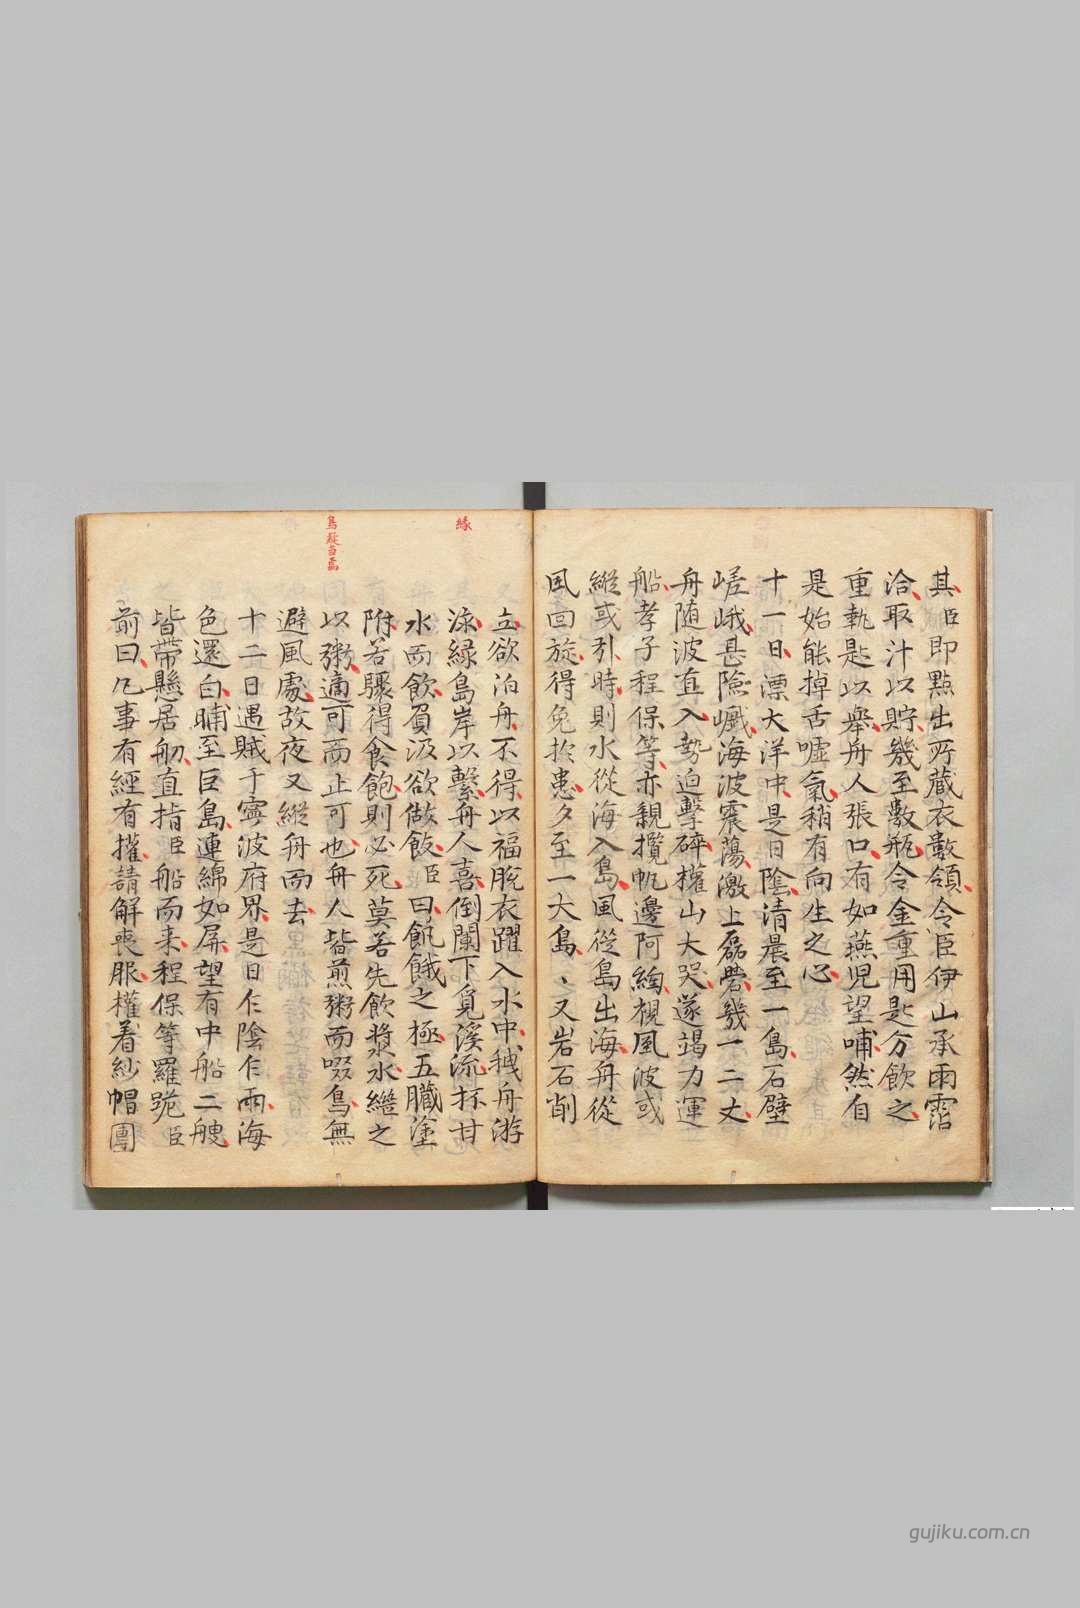 其臣即點出所藏衣數領令臣伊山承雨霑
洽取汁以貯幾至數瓶令金重用匙分飲之
重執匙以舉舟人張口有如燕児望哺然自
是始能掉舌噓氣稍有向生之心
十一日漂大洋中是日陰清晨至一島石壁
嵯峨甚險巇海波震蕩激上磊礐幾一二丈
舟随波直入勢迫擊碎權山大哭遂竭力運
船孝子程保等亦親攬帆邊阿絢視風波或
縱或引時則水從海入島風從島出海舟從
風回旋得免於患夕至一大島〻又岩石削
立欲泊舟不得以福脫衣躍入水中銊舟游
泳緑島岸以繫舟人喜倒闌下覓溪流抔甘
水而飲負汲欲做飯臣曰飢餓之極五臟塗
附若驟得食飽則必死莫若先飲漿水繼之
以粥適可而止可也舟人皆煎粥而啜島無
避風處故夜又縱舟而去
十二日遇賊于寧波府界是日乍陰乍雨海
色還白晡至巨島連綿如屏望有中船二艘
皆帶懸居舠直指臣船而来程保等羅跪臣
前曰凡事有經有權請解喪服權着紗帽團
緣
島縱當高
gujiku.com.cn